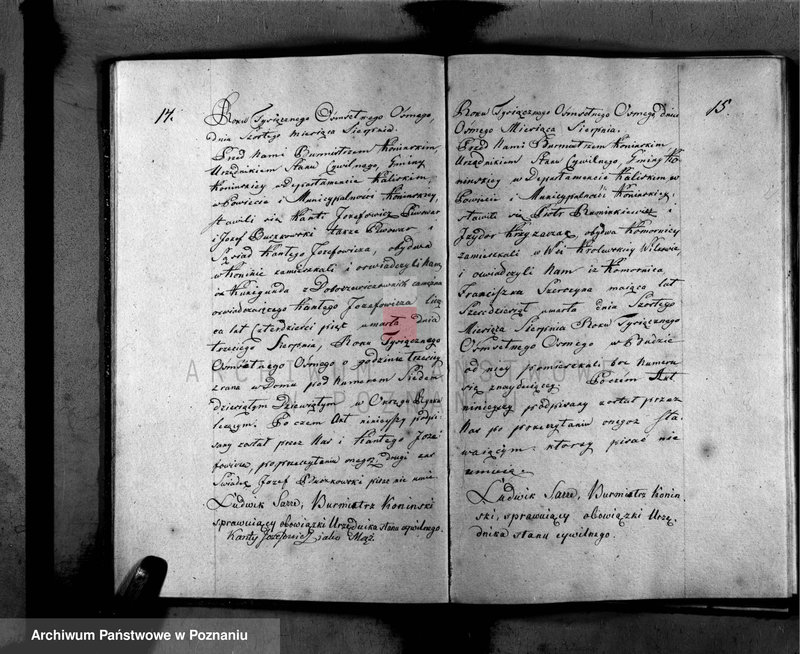 14.
Roku Tysiącznego Osmsetnego Osmego,
dnia Szóstego miesiąca Sierpnia.
Przed Nami Burmistrzem Konińskim,
Urzędnikiem Stanu Cywilnego, Gminy
Konińskiey w Departamencie Kaliskim,
w Powiecie i Municypalności Konińskiey,
stawili się Kanti Jozefowicz Piwowar
i Jozef Buczkowski także Piwowar i
Sąsiad Kantego Jozefowicza, obydwa
w Koninie zamieszkali i oswiadczyli Nam,
iż Kunegunda z
oswiadczaiącego Kantego Jozefowicza
ca lat Czterdzieści pięć umarła dnia
trzeciego Sierpnia, Roku Tysiącznego
Osmsetnego Osmego o godzinie trzeciey
zrana w Domu pod Numerem Siedem
dziesiątym Dziewiątym w
Po czem Akt ninieyszy podpi
sany został przez Nas i Kantego Joze
fowicza, po przeczytaniu onegoż, drugi zas
Swiadek Jozef Buczkowski pisać nie umie.
Ludwik Sarre, Burmistrz Koninski
sprawuiący obowiązki Urzędnika stanu cywilnego.
Kanty Jozefowicz jako Mąż.
15.
Roku Tysiącznego Osmsetnego Osmego dnia
Osmego Miesiąca Sierpnia.
Przed Nami Burmistrzem Koninskim
Urzędnikiem Stanu Cywilnego, Gminy Ko
ninskiey w Departamencie Kaliskim w
Powiecie i Municypalności Konińskiey,
stawili się Piotr i
Izydor Krzyzaczak, obydwa Komornicy
zamieszkali w Wsi Krolewskiey
i oswiadczyli Nam iż Komornica
Franciszka maiąca lat
Szescdziesiąt umarła dnia Szostego
Miesiąca Sierpnia Roku Tysiącznego
Osmsetnego Osmego w Budzie
od niey pomieszkali bez Numeru
się znayduiącey. Poczem Akt
ninieyszy podpisany został przez
Nas po przeczytaniu onegoż Sta
waiącym, ktorzy pisać nie
umieią.
Ludwik Sarre, Burmistrz Konin
ski, sprawuiący obowiązki Urzę
dnika stanu cywilnego.
ARCHIWUM PAŃSTWOWE
W POZNANIU
Archiwum Państwowe w Poznaniu